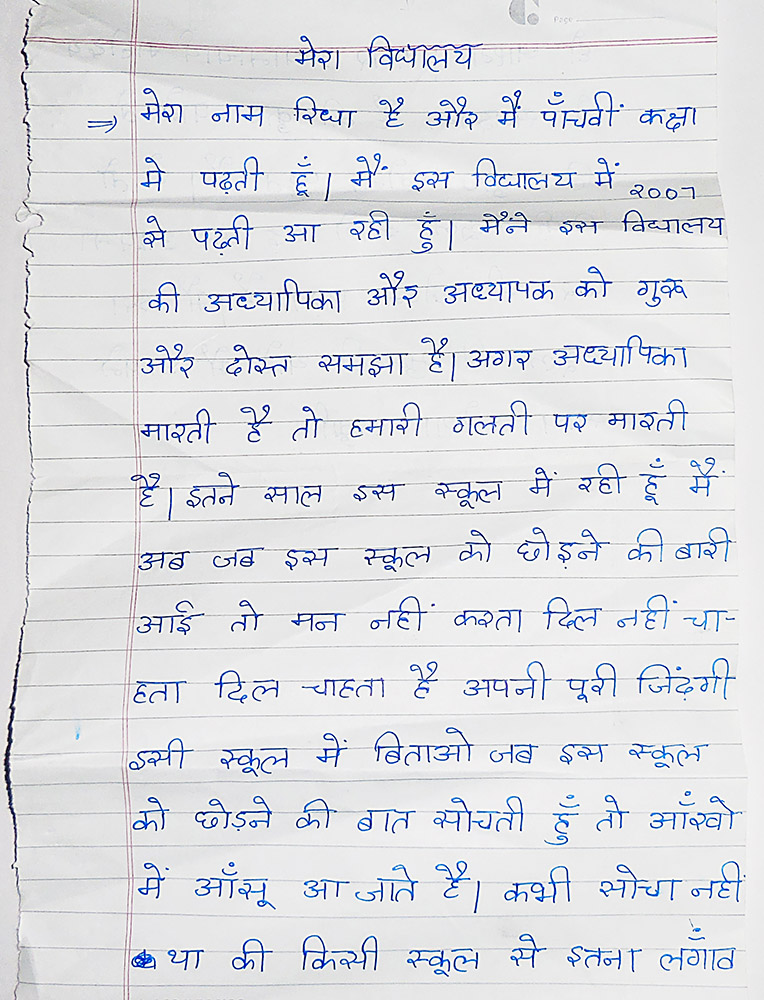 Page
मेरा विद्यालय
⇒ मेरा नाम रिधा है और मैं पाँचवीं कक्षा
मे पढ़ती हूँ। मैं इस विद्यालय में २००७
से पढ़ती आ रही हुँ। मैंने इस विद्यालय
की अध्यापिका और अध्यापक को गुरू
और दोस्त समझा है। अगर अध्यापिका
मारती है तो हमारी गलती पर मारती
है। इतने साल इस स्कूल में रही हूँ मैं
अब जब इस स्कूल को छोड़ने की बारी
आई तो मन नहीं करता दिल नहीं चा-
हता दिल चाहता है अपनी पूरी जिंढ़गी
इसी स्कूल में बिताओ जब इस स्कूल
को छोड़ने की बात सोचती हुँ तो आँखो
में आँसू आ जाते है। कभी सोचा नहीं
था की किसी स्कूल से इतना लगाँव